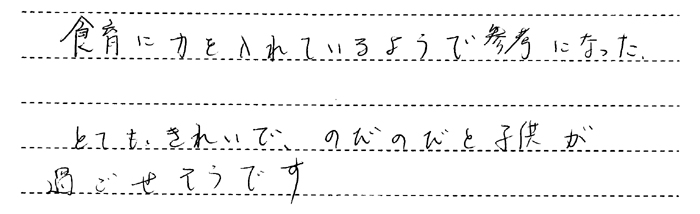 食育に力を入れているようで参考になった.
とても、きれいで、のびのびと子供が
過ごせそうです